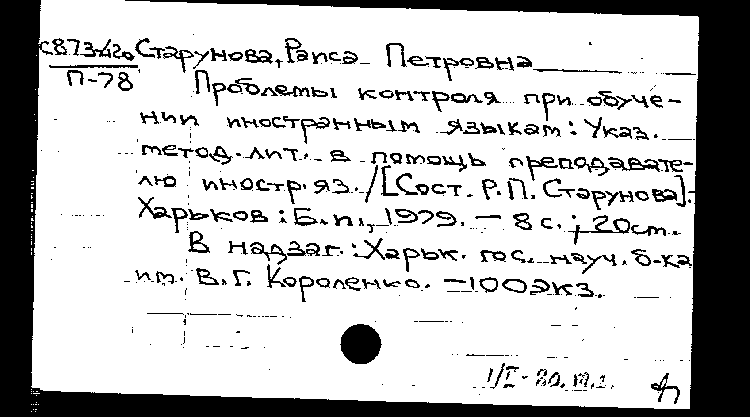 С873.420 Старунова, Раиса Петровна
П-78 Проблемы контроля при обуче-
нии иностранным языкам: Указ.
метод. лит. в помощь преподавате-
лю иностр. яз. / [Сост. Р. П. Старунова]. -
Харьков : Б. и., 1979. - 8 с. ; 20 см.
В надзаг.: Харьк. гос. науч. б-ка
им. В. Г. Короленко. - 100 экз.